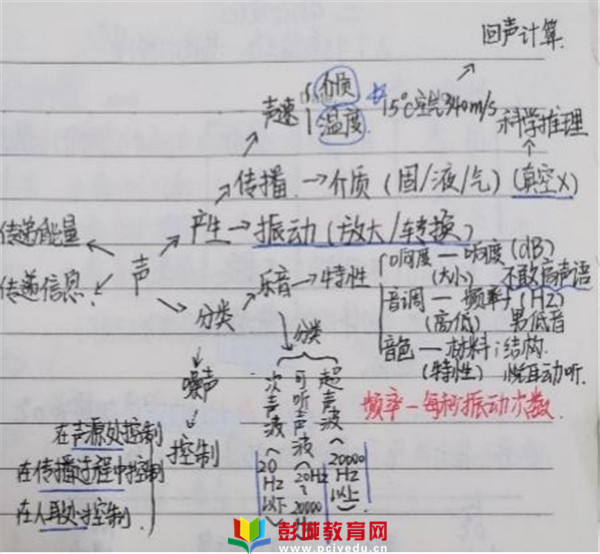 回声计算
声速
介质
温度
15℃空气340m/s
科学推理
传播→介质(固/液/气)(真空X)
传递能量
产生→振动(放大/转换)
传递信息
声
分类
乐音→特性
响度—响度(dB)
(大小) 不敢高声语
音调—频率(Hz)
(高低) 男低音
音色—材料;结构
(特性) 悦耳动听
分类
次声波(20Hz以下)
可听声波(20Hz~20000
超声波(20000Hz以上)
频率—每秒振动次数
噪声
控制
在声源处控制
在传播过程中控制
在人耳处控制
彭城教育网
www.pcjvedu.cn